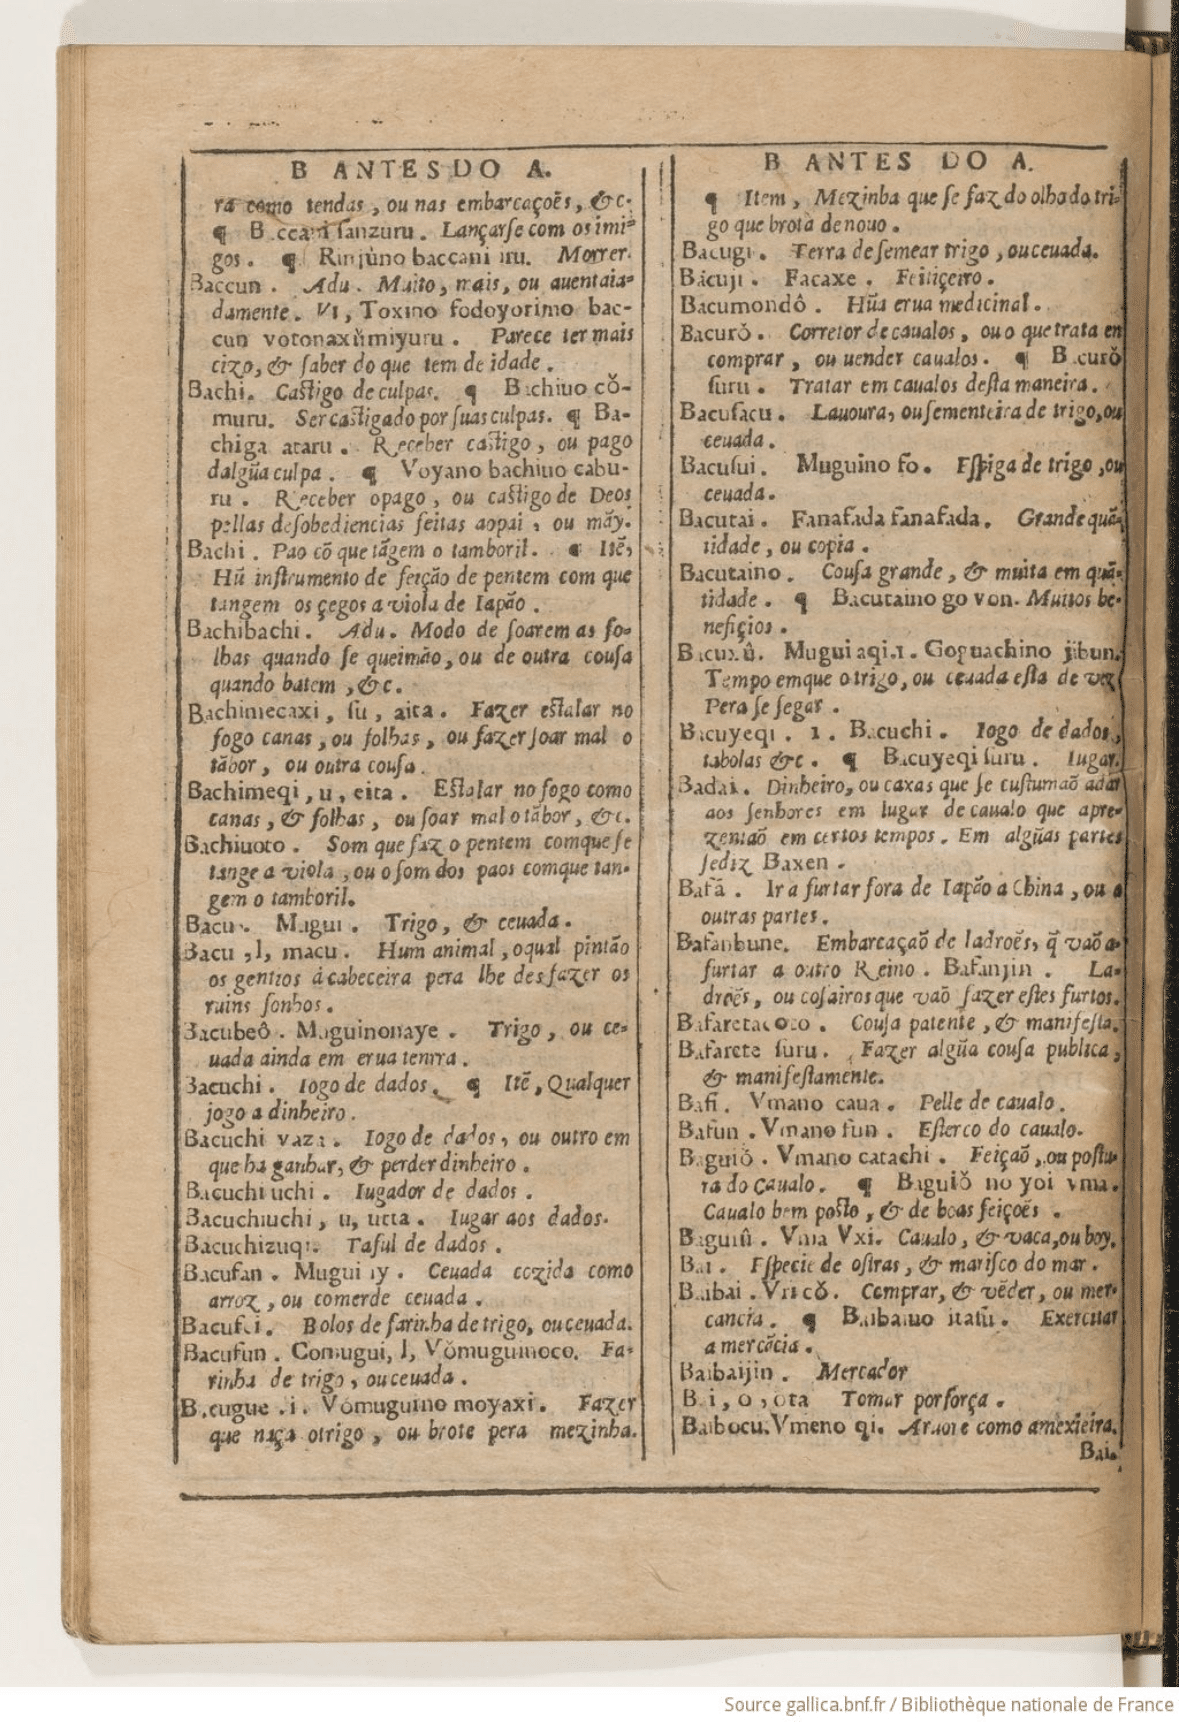 B ANTES DO A.
ra como tendas, ou nas embarcaçoẽs, &c.
¶ Baccani ſanzuru. Lançarſe com os imi-
gos. ¶ Rinjǔno baccani iru. Morrer.
Baccun. Adu. Muito, mais, ou auentaia-
damente. Vt, Toxino fodoyorimo bac-
cun votonaxǔmiyuru. Parece ter mais
cizo, & ſaber do que tem de idade.
Bachi. Caſtigo de culpas. ¶ Bachiuo cŏ-
muru. Ser caſtigado por ſuas culpas. ¶ Ba-
chiga ataru. Receber caſtigo, ou pago
dalgũa culpa. ¶ Voyano bachiuo cabu-
ru. Receber o pago, ou caſtigo de Deos
pellas deſobediencias feitas ao pai, ou mãy.
Bachi. Pao cõ que tãgem o tamboril. ¶ Itẽ,
Hũ inſtrumento de feição de pentem com que
tangem os çegos a viola de Iapão.
Bachibachi. Adu. Modo de ſoarem as fo-
lhas quando ſe queimão, ou de outra couſa
quando batem, &c.
Bachimecaxi, ſu, aita. Fazer eſtalar no
fogo canas, ou folhas, ou fazer ſoar mal o
tãbor, ou outra couſa.
Bachimeqi, u, eita. Eſtalar no fogo como
canas, & folhas, ou ſoar mal o tãbor, &c.
Bachiuoto. Som que faz o pentem comque ſe
tange a viola, ou o ſom dos paos comque tan-
gem o tamboril.
Bacu. Mugui. Trigo, & ceuada.
Bacu, l, macu. Hum animal, oqual pintão
os gentios á cabeceira pera lhe desfazer os
ruins ſonhos.
Bacubeô. Muguinonaye. Trigo, ou ce-
uada ainda em erua tenrra.
Bacuchi. Iogo de dados. ¶ Itẽ, Qualquer
jogo a dinheiro.
Bacuchi vaza. Iogo de dados, ou outro em
que ha ganhar, & perder dinheiro.
Bacuchi uchi. Iugador de dados.
Bacuchiuchi, u, utta. Iugar aos dados.
Bacuchizuqi. Taful de dados.
Bacufan. Mugui iy. Ceuada cozida como
arroz, ou comerde ceuada.
Bacufei. Bolos de farinha de trigo, ou ceuada.
Bacufun. Comugui, l, Vŏmuguinoco. Fa-
rinha de trigo, ou ceuada.
Bacugue. i. Vŏmuguino moyaxi. Fazer
que naça otrigo, ou brote pera mezinha.
B ANTES DO A.
¶ Item, Mezinha que ſe faz do olho do tri-
go que brota de nouo.
Bacugi. Terra de ſemear trigo, ou ceuada.
Bacuji. Facaxe. Feitiçeiro.
Bacumondô. Hũa erua medicinal.
Bacurŏ. Corretor de caualos, ou o que trata em
comprar, ou uender caualos. ¶ Bacurŏ
ſuru. Tratar em caualos deſta maneira.
Bacuſacu. Lauoura, ou ſementeira de trigo, ou
ceuada.
Bacuſui. Muguino fo. Eſpiga de trigo, ou
ceuada.
Bacutai. Fanafada fanafada. Grande quã-
tidade, ou copia.
Bacutaino. Couſa grande, & muita em quã-
tidade. ¶ Bacutaino go von. Muitos be-
nefiçios.
Bacuxû. Mugui aqi. 1. Goguachino jibun.
Tempo emque o trigo, ou ceuada eſta de vez
Pera ſe ſegar.
Bacuyeqi. 1. Bacuchi. Iogo de dados,
tabolas &c. ¶ Bacuyeqi ſuru. Iugar.
Badai. Dinheiro, ou caxas que ſe cuſtumaõ adar
aos ſenhores em lugar de caualo que apre-
zentaõ em certos tempos. Em algũas partes
ſediz Baxen.
Bafã. Ir a furtar fora de Iapão a China, ou a
outras partes.
Bafanbune. Embarcaçaõ de ladroẽs, q̃ vaõ a-
furtar a outro Reino. Bafanjin. La-
droẽs, ou coſairos que vaõ fazer eſtes furtos.
Bafaretacoto. Couſa patente, & manifeſta.
Bafarete ſuru. Fazer algũa couſa publica,
& manifeſtamente.
Bafi. Vmano caua. Pelle de caualo.
Bafun. Vmano fun. Eſterco do caualo.
Baguiŏ. Vmano catachi. Feiçaõ, ou poſtu-
ra do çaualo. ¶ Baguiŏ no yoi vma.
Caualo bem poſto, & de boas feiçoẽs.
Baguiû. Vma Vxi. Caualo, & vaca, ou boy.
Bai. Eſpecie de oſtras, & mariſco do mar.
Baibai. Vricŏ. Comprar, & vẽder, ou mer-
cancia. ¶ Baibaiuo itaſu. Exercitar
a mercãcia.
Baibaijin. Mercador
Bai, o, ota Tomar por força.
Baibocu. Vmeno qi. Aruore como amexieira.
Bai.
Source gallica.bnf.fr / Bibliothèque nationale de France